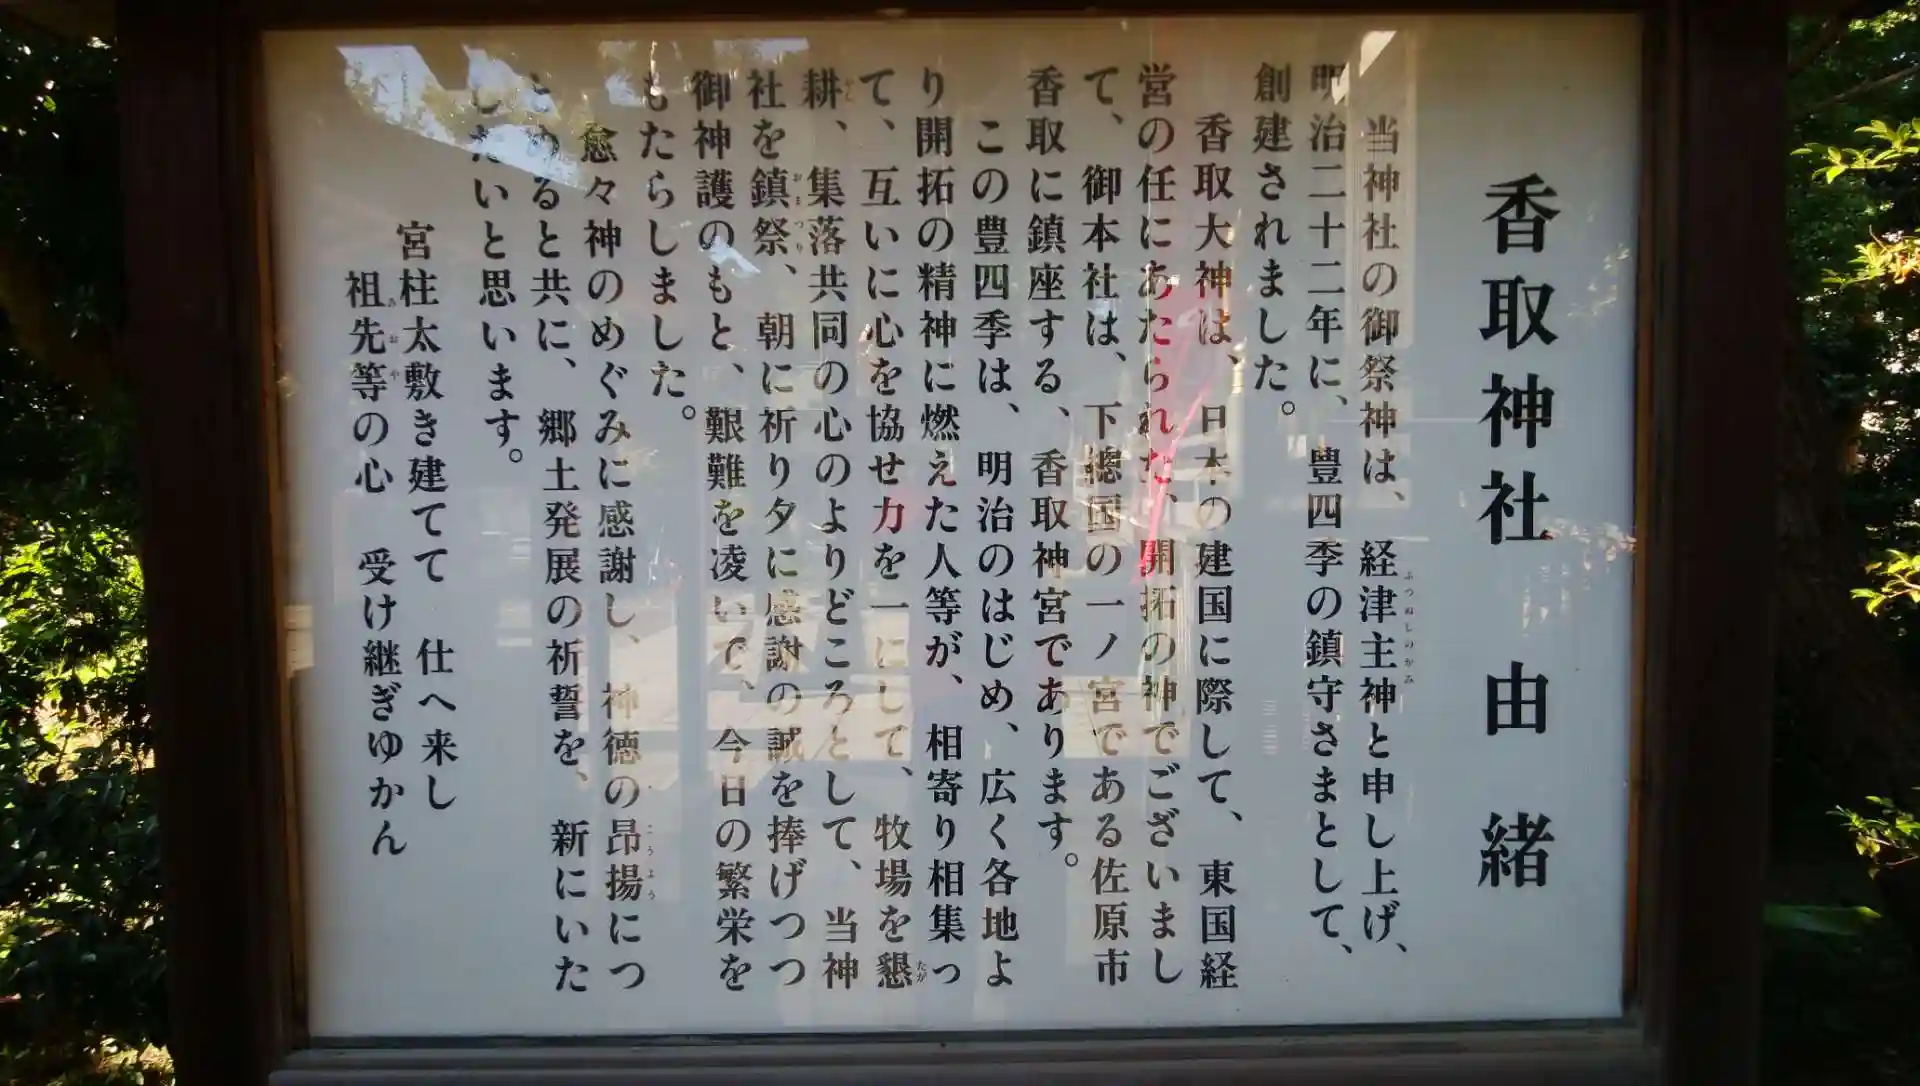 香取神社 由緒
当神社の御祭神は、経津主神と申し上げ、
ふつぬしのかみ
明治二十二年に、豊四季の鎮守さまとして、
創建されました。
香取大神は、日本の建国に際して、東国経
営の任にあたられた、開拓の神でございまし
て、御本社は、下總国の一ノ宮である佐原市
香取に鎮座する、香取神宮であります。
この豊四季は、明治のはじめ、広く各地よ
り開拓の精神に燃えた人等が、相寄り相集っ
て、互いに心を協せ力を一にして、牧場を懇
たが
耕、集落共同の心のよりどころとして、当神
社を鎮祭、朝に祈り夕に感謝の誠を捧げつつ
おまつり
御神護のもと、艱難を凌いで、今日の繁栄を
もたらしました。
愈々神のめぐみに感謝し、神徳の昂揚につ
こうよう
とめると共に、郷土発展の祈誓を、新にいた
したいと思います。
宮柱太敷き建てて 仕へ来し
祖先等の心 受け継ぎゆかん
みおや